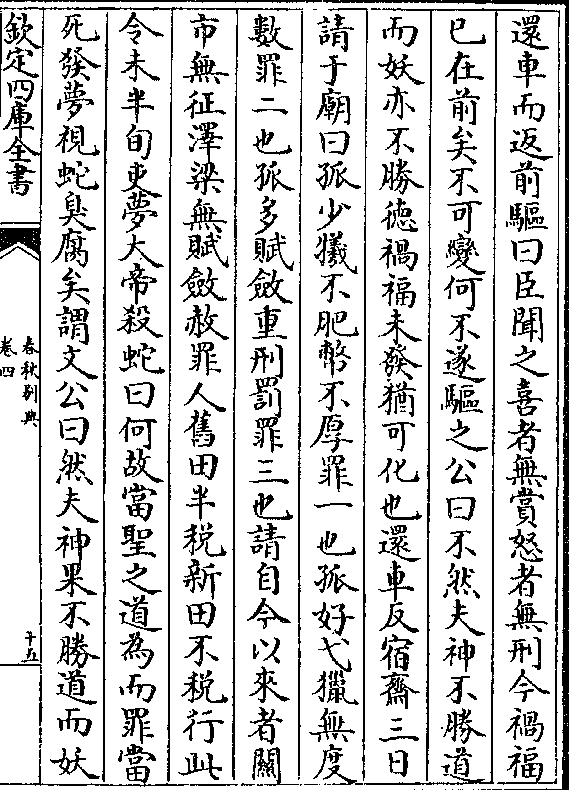 還車而返前驅曰臣聞之喜者無賞怒者無刑今禍福
已在前矣不可變何不遂驅之公曰不然夫神不勝道
而妖亦不勝德禍福未發猶可化也還車反宿齋三日
請于廟曰孤少犧不肥幣不厚罪一也孤好弋獵無度
數罪二也孤多賦斂重刑罰罪三也請自今以來者關
市無征澤梁無賦斂赦罪人舊田半税新田不税行此
令未半旬吏夢大帝殺蛇曰何故當聖之道為而罪當
死發夢視蛇臭腐矣謂文公曰然夫神果不勝道而妖
欽定四庫全書
春秋别典
卷四
十五